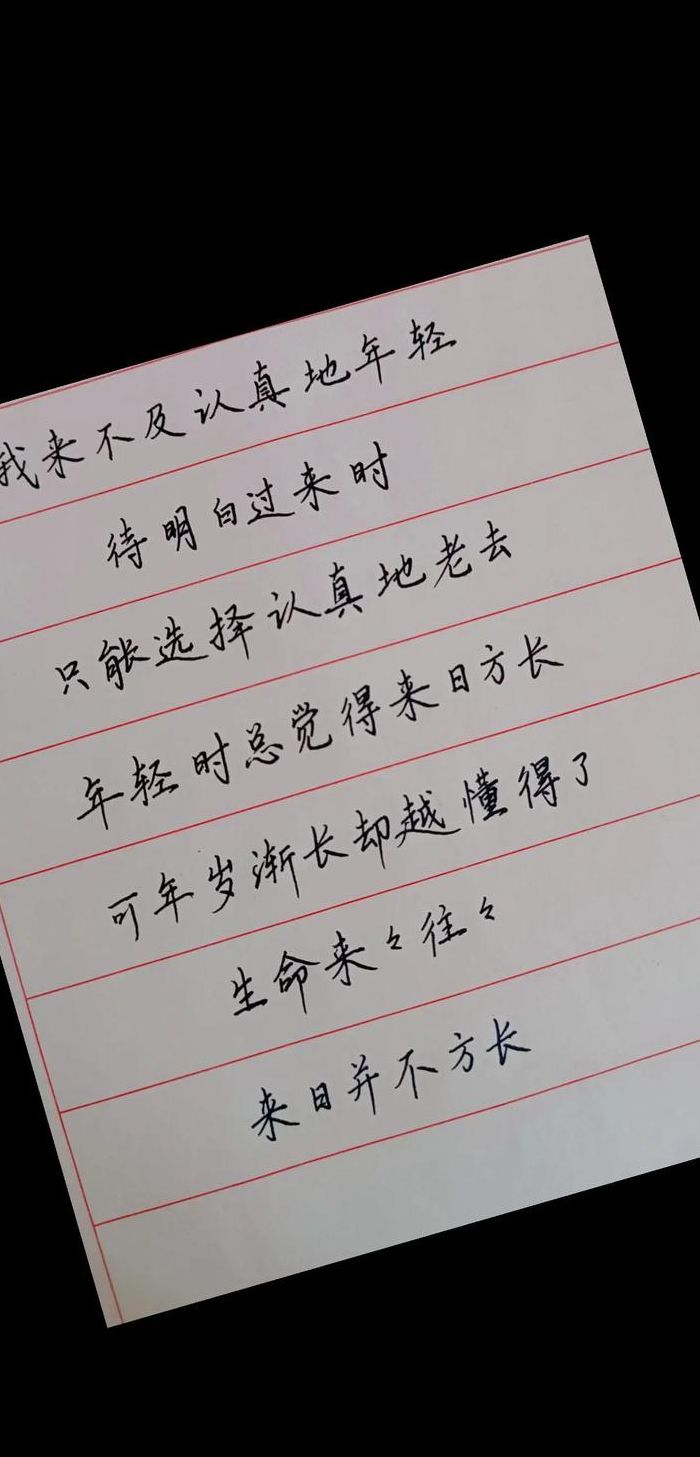 我来不及认真地年轻
待明白过来时
只能选择认真地老去
年轻时总觉得来日方长
可年岁渐长却越懂得了
生命来々往々
来日并不方长